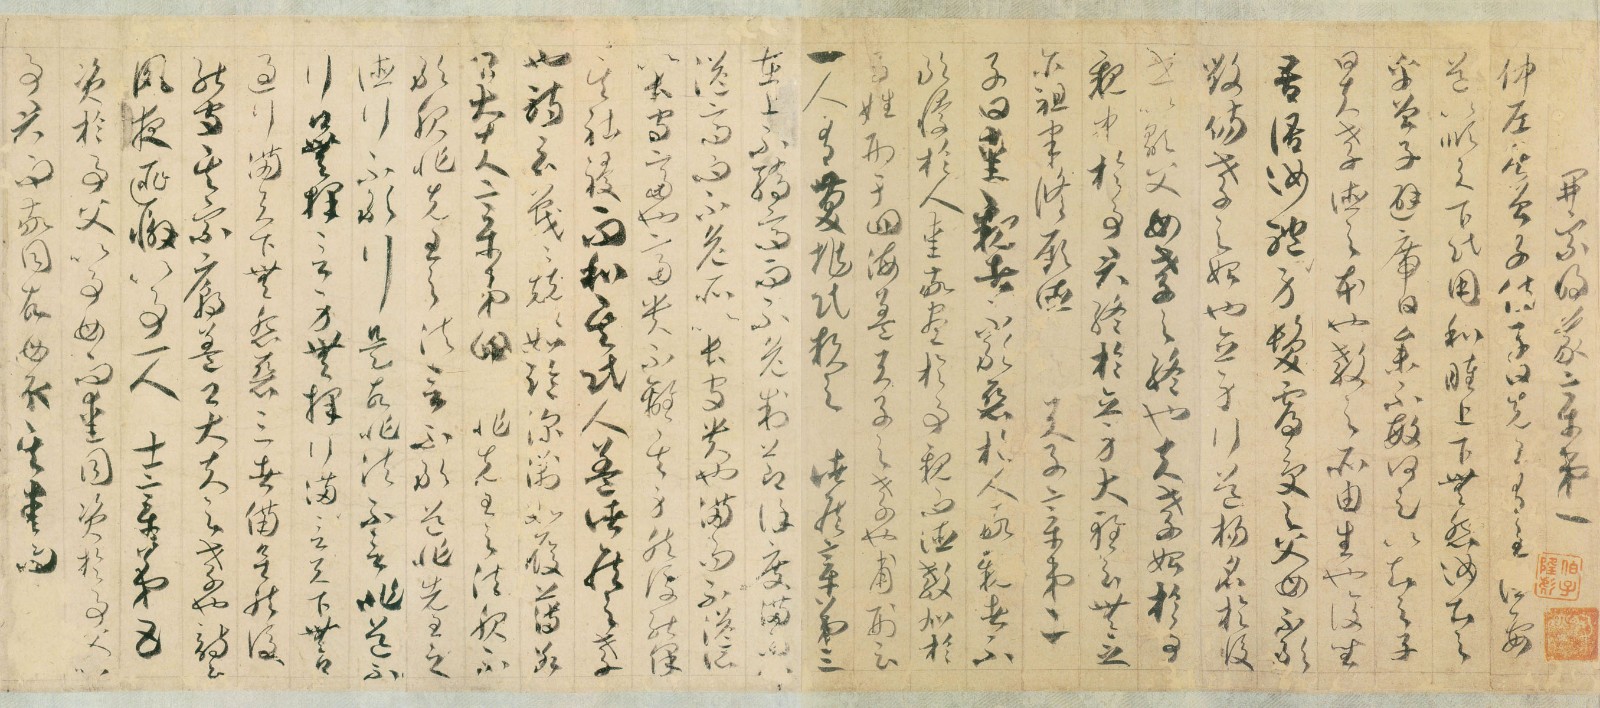 開宗明義章第一
仲尼居曾子侍子曰先王有至德要
道以順天下民用和睦上下無怨汝知之
乎曾子避席曰參不敏何足以知之子
曰夫孝德之本也教之所由生也復坐
吾語汝體身髮膚受之父母不敢
毀傷孝之始也立身行道揚名於後
世以顯父母孝之終也夫孝始於事
親中於事君終於立身大雅云無念
爾祖聿脩厥德 天子章第二
子曰愛親者不敢惡於人敬親者不
敢慢於人愛敬盡於事親而德教加於
百姓刑于四海蓋天子之孝也甫刑云
一人有慶兆民賴之 諸侯章第三
在上不驕高而不危制節謹度滿而不
溢高而不危所以長守貴也滿而不溢所
以長守富也富貴不離其身然後能保
其社稷而和其民人蓋諸侯之孝
也詩云戰戰兢兢如臨深淵如履薄冰
卿大夫章第四 非先王之法服不
敢服非先王之法言不敢道非先王之
德行不敢行是故非法不言非道不
行口無擇言身無擇行言滿天下無口
過行滿天下無怨惡三者備矣然後
能守其宗廟蓋卿大夫之孝也詩云
夙夜匪懈以事一人 士章第五
資於事父以事母而愛同資於事父以
事君而敬同故母取其愛而